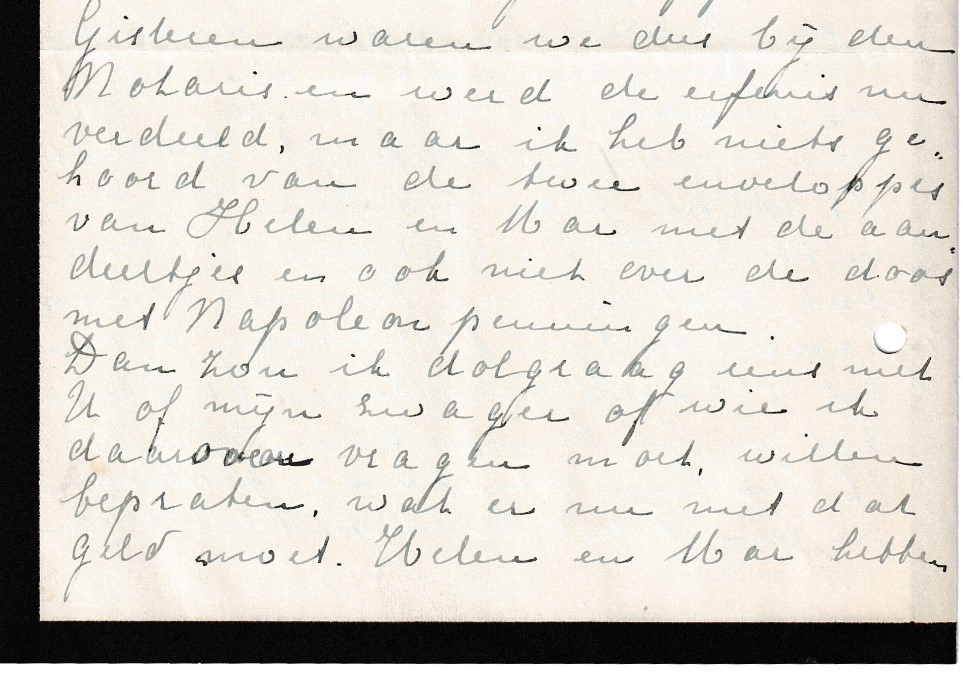 Gisteren waren we dus bij den
Notaris en werd de erfenis nu
verdeeld, maar ik heb niets ge„
hoord van de twee enveloppes
van Helen en Mar met de aan„
deeltjes en ook niet over de doos
met Napoleon penningen.
Dan zou ik dolgraag eens met
U of mijn zwager of wie ik
daarvoor vragen moet, willen
bepraten, wat er nu met dat
geld moet. Helen en Mar hebben